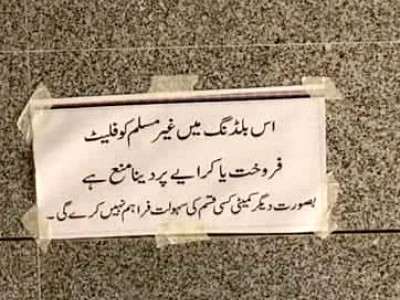 اس بلڈنگ میں غیر مسلم کو فلیٹ
فروخت یا کرایے پر دینا منع ہے
بصورت دیگر کمیٹی کسی قسم کی سہولت فراہم نہیں کرے گی ۔